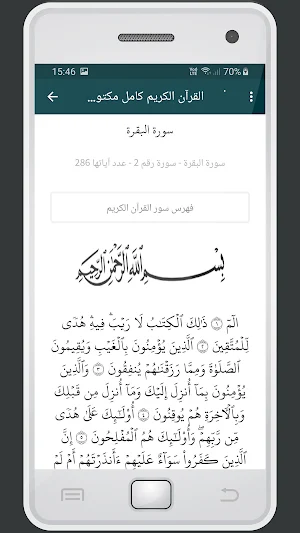 15:46 70%
القرآن الكريم كامل مكتو...
سورة البقرة
سورة البقرة - سورة رقم 2 - عدد آياتها 286
فهرس سور القرآن الكريم
بِسْمِ اللَّهِ الرَّحْمَٰنِ الرَّحِيمِ
الٓمٓ ۝١ ذَٰلِكَ ٱلْكِتَٰبُ لَا رَيْبَ ۛ فِيهِ ۛ هُدًى
لِّلْمُتَّقِينَ ۝٢ ٱلَّذِينَ يُؤْمِنُونَ بِٱلْغَيْبِ وَيُقِيمُونَ
ٱلصَّلَوٰةَ وَمِمَّا رَزَقْنَٰهُمْ يُنفِقُونَ ۝٣ وَٱلَّذِينَ
يُؤْمِنُونَ بِمَآ أُنزِلَ إِلَيْكَ وَمَآ أُنزِلَ مِن قَبْلِكَ
وَبِٱلْءَاخِرَةِ هُمْ يُوقِنُونَ ۝٤ أُو۟لَٰٓئِكَ عَلَىٰ هُدًى
مِّن رَّبِّهِمْ ۖ وَأُو۟لَٰٓئِكَ هُمُ ٱلْمُفْلِحُونَ ۝٥ إِنَّ
ٱلَّذِينَ كَفَرُوا۟ سَوَآءٌ عَلَيْهِمْ ءَأَنذَرْتَهُمْ أَمْ لَمْ